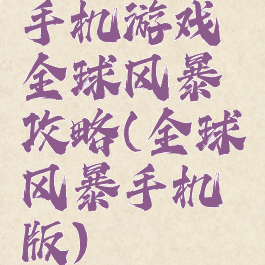 手机游戏
全球风暴
攻略(全球
风暴手机
版)